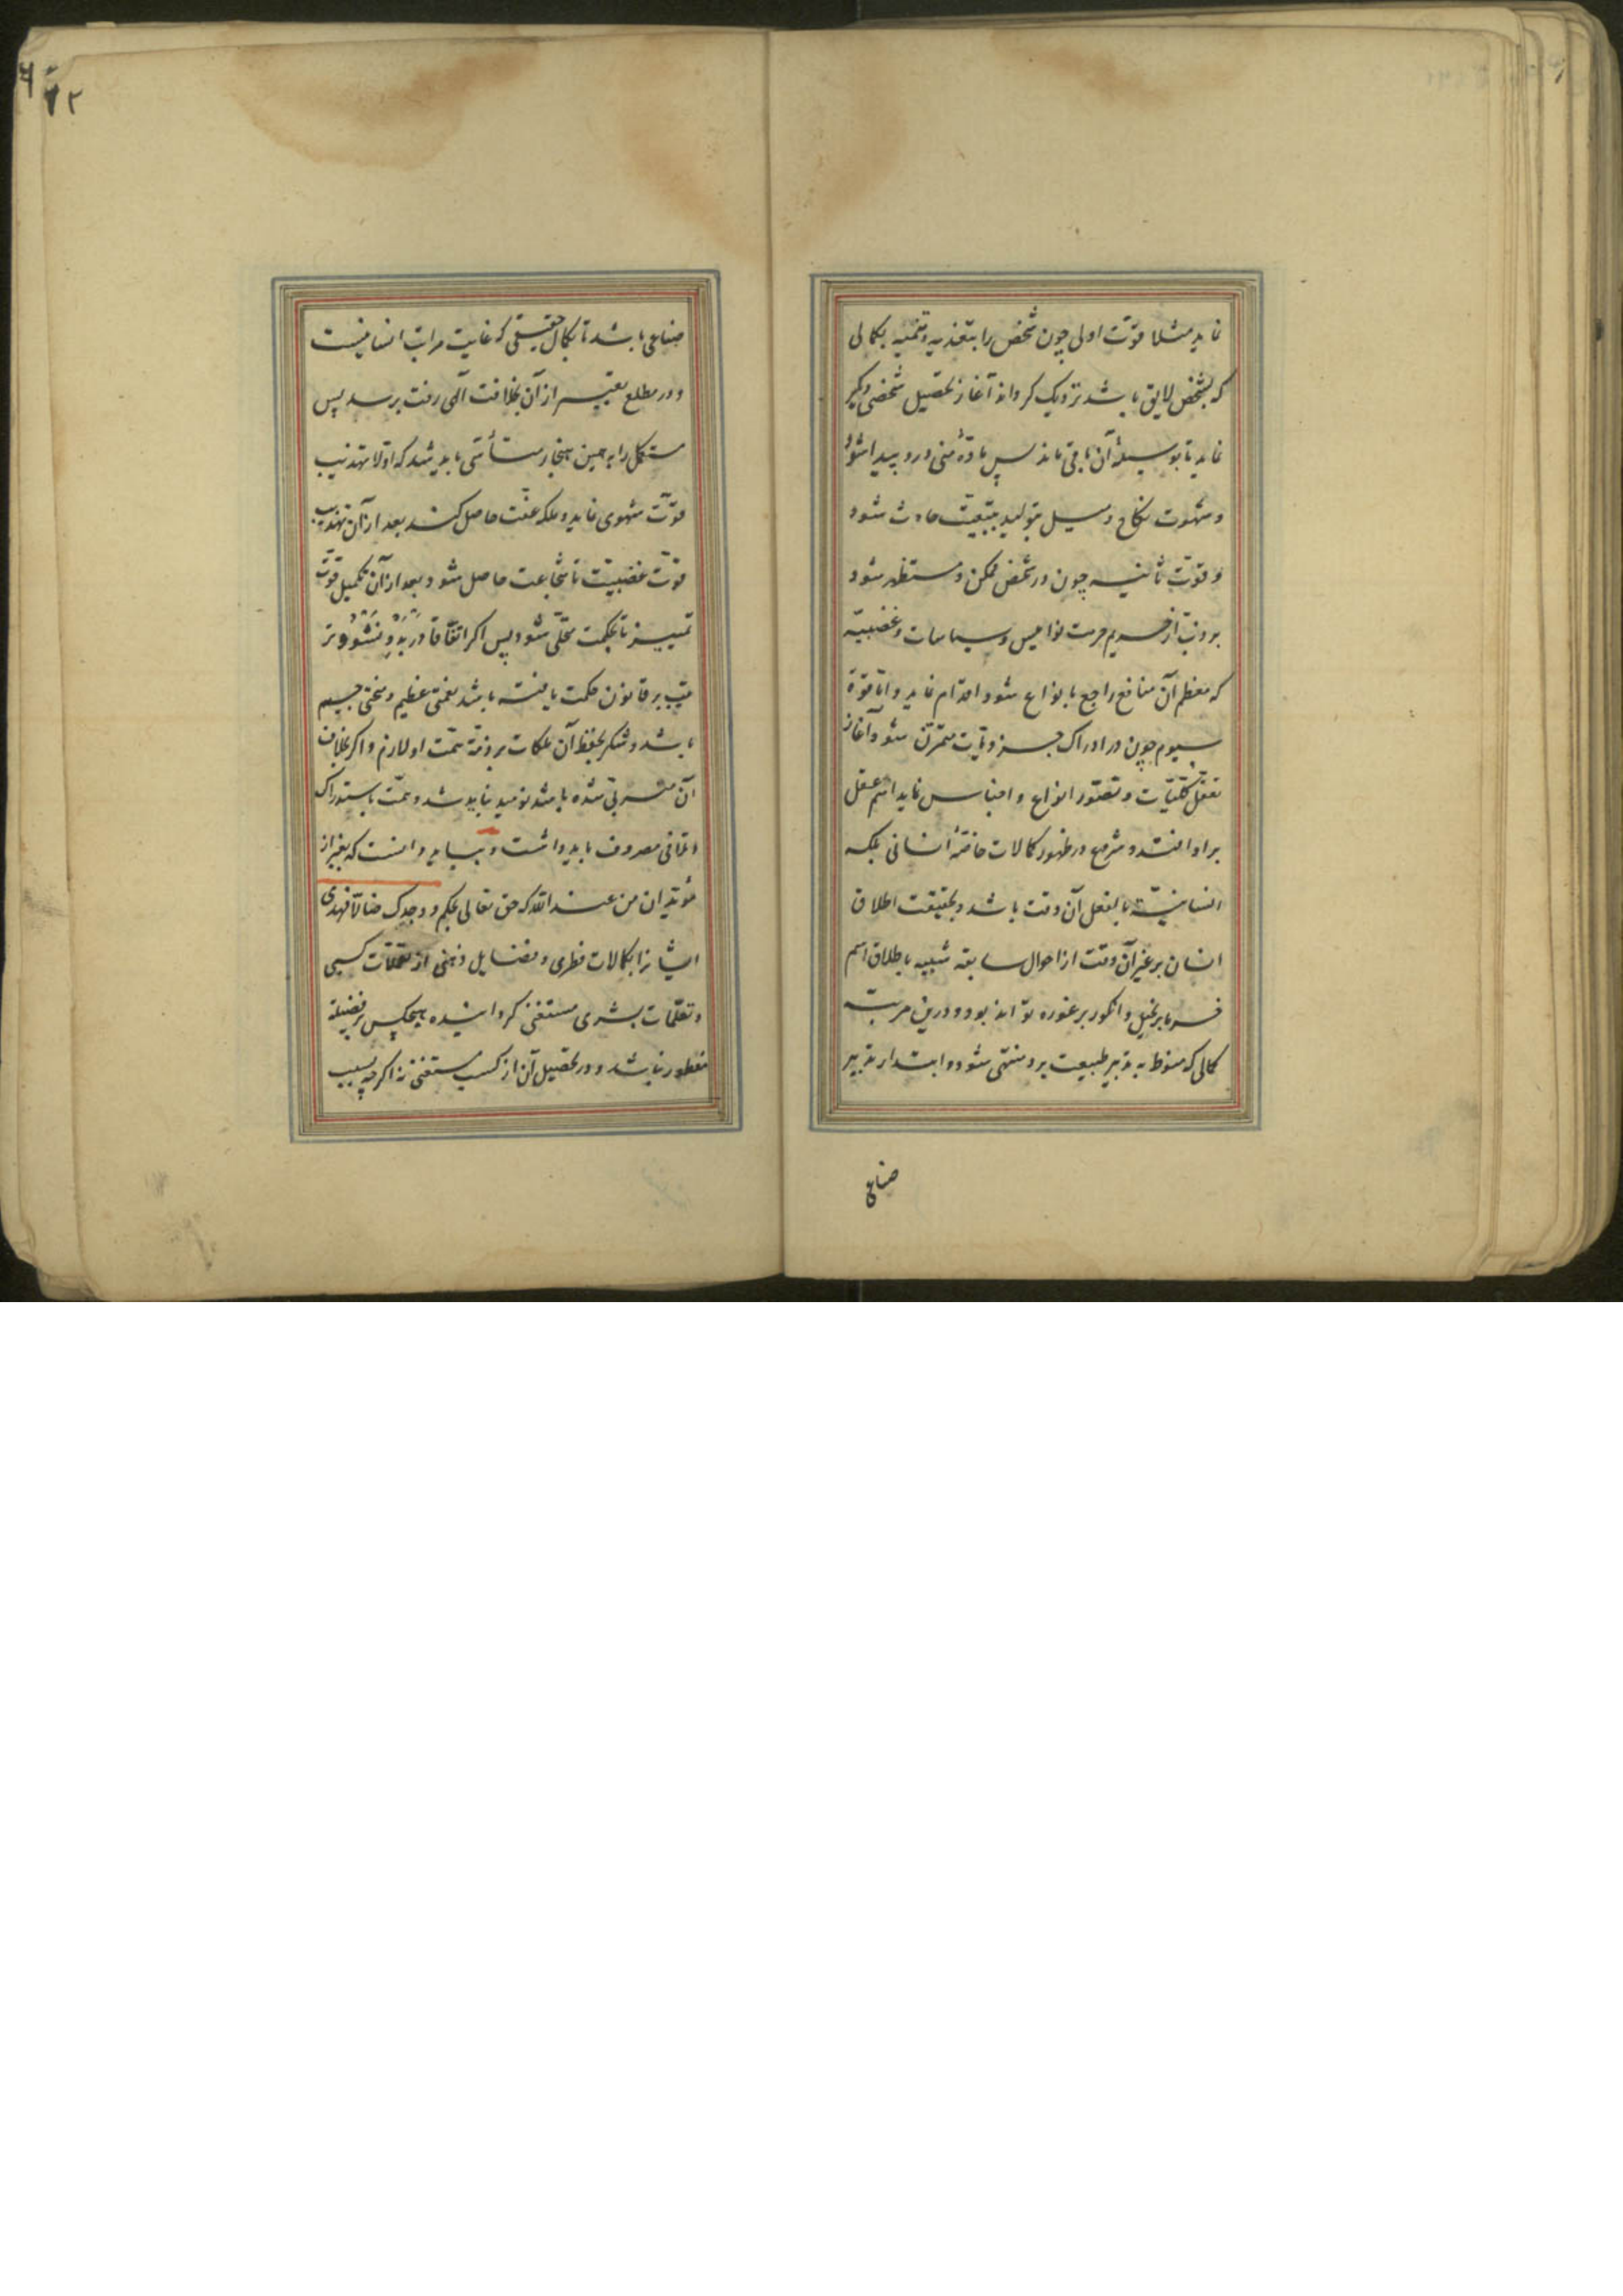 نماید مثلا قوّت اولی چون شخص را بتغذیه و تنمیه بکمالی
که بشخص لایق باشد نزدیک کرداند آغاز تحصیل شخصی دیگر
نماید تا بوسیله آن باقی ماند پس مادّهٔ منی درو پیدا شود
و شهوت نکاح و میل بتولید بتبعیّت حادث شود
و قوّت ثانیه چون در شخص ممکن و مستظهر شود
بر ذبّ از حریم حرمت نوامیس و سیاسات و غضبیّه
که معظم آن منافع راجع بانواع شود اقدام نماید و امّا قوة
سیوم چون در ادراک جزویّات متمرّن شود آغاز
تعقّل کلیّات و تصوّر انواع و اجناس نماید اسم عقل
بر او افتد و شروع در ظهور کمالات خاصّهٔ انسانی بلکه
انسانیّة بالفعل آن وقت باشد و بحقیقت اطلاق
انسان بر غیر آن وقت از احوال سابقه شبیه باطلاق اسم
خرما بر نخیل و انگور بر غوره تواند بود و درین مرتبه
کمالی که منوط به تدبیر طبیعت بود منتهی شود و ابتدار تدبیر
صناعی
۶۲
صناعی باشد تا بکمال حقیقی که غایت مراتب انسانیست
و در مطلع تعبیر از آن بخلافت آلهی رفت برسد پس
مستکمل را به همین هنجار متأسّی باید شد که اولا تهذیب
قوّت شهوی نماید و ملکه عفّت حاصل کند بعد از آن تهذیب
قوّت غضبیّت تا شجاعت حاصل شود و بعد از آن تکمیل قوّت
تمییز تا بحکمت محلّی شود پس اکر اتفاقا در بَدو نُشُوء تر
تیب بر قانون حکمت یافته باشد نعمتی عظیم و منحتی جسیم
باشد و شکر بحفظ آن ملکات بر ذمّهٔ همّت او لازم و اکر بخلاف
آن متربّی شده باشد نومید نباید شد و همّت باستدراک
و تلافی مصروف باید داشت و بباید دانست که بغیر از
مؤیّدان من عند الله که حق تعالی بحکم و وجدک ضالّا فهدی
ایشانرا بکمالات فطری و فضایل ذهنی از تعمّلات کسبی
و تعلّمات بشری مستغنی کردانیده هیچکس بر فضیلة
مفطور نباشد و در تحصیل آن از کسب مستغنی نه اکرچه بسبب